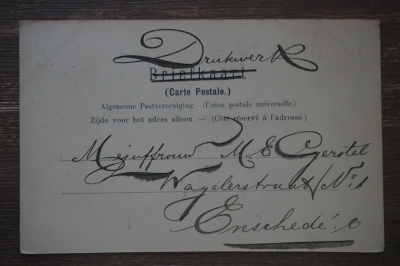 Drukwerk
Briefkaart
(Carte Postale.)
Algemeene Postvereeniging. (Union postale universelle.)
Zijde voor het adres alleen — (Côté réservé à l'adresse.)
Mejuffrouw M E Gerstel
Wagelerstraat N: 1
Enschedé